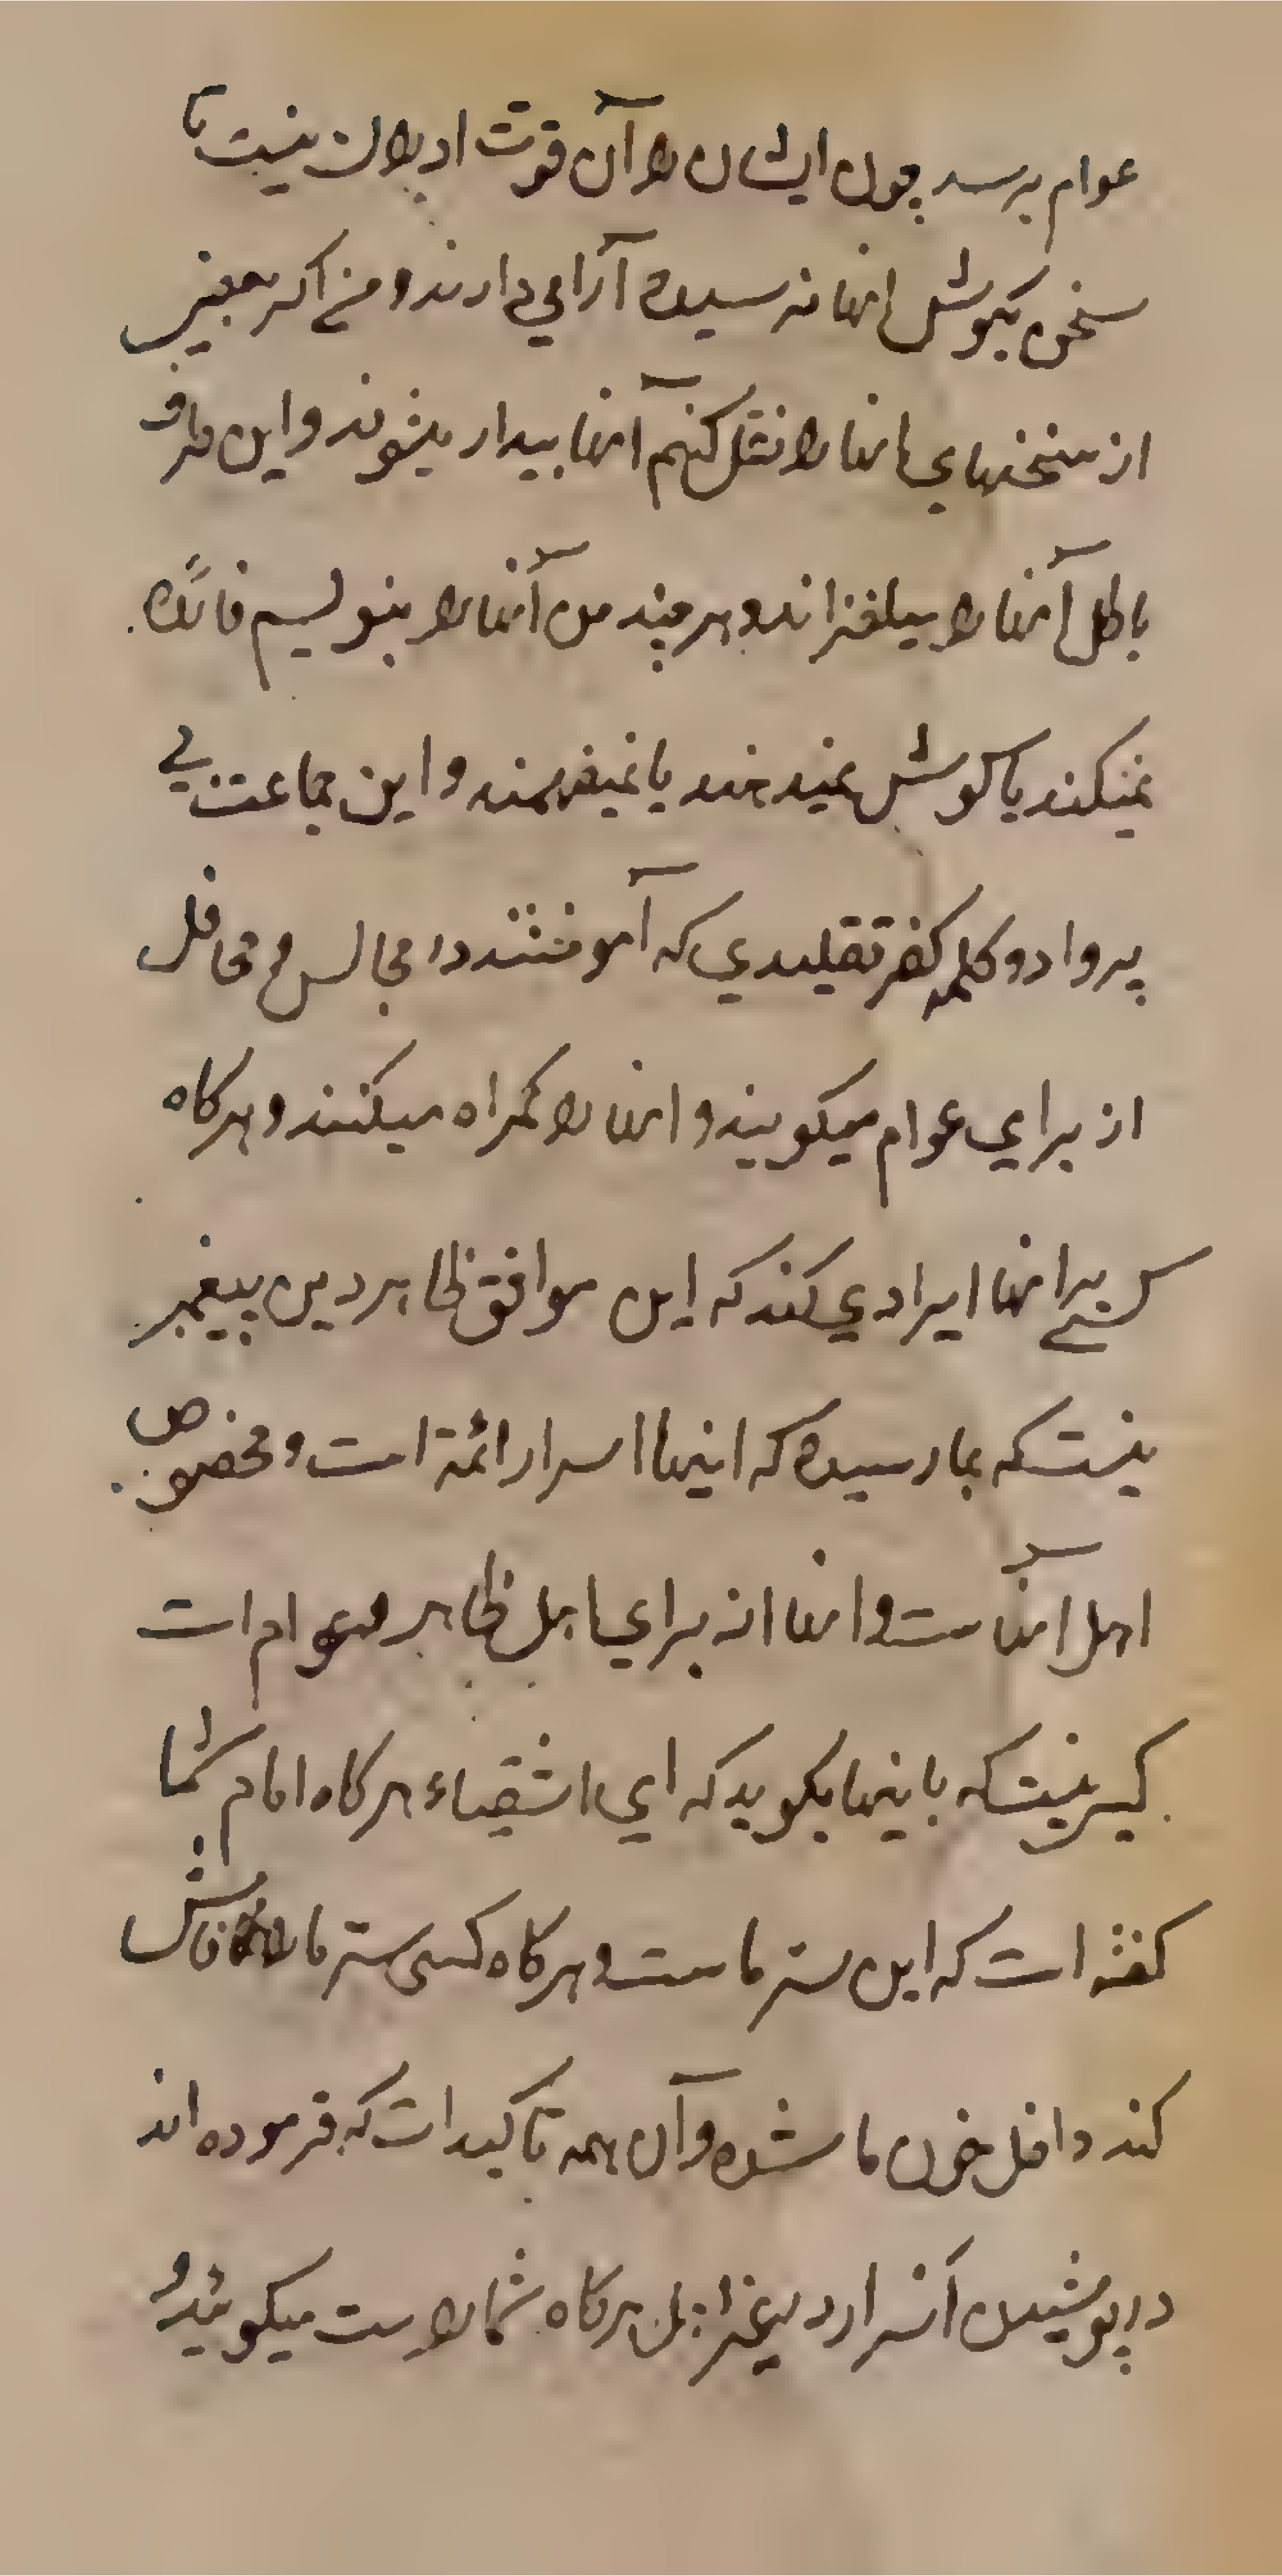 عوام برسد چون ایشان را آن قوت ادراک نیست تا
سخن بکوش انها نرسیده آرامی دارند و منی اکر بعضی
از سخنهای انها را نقل کنم انها بیدار میشوند و این طرف
باطل آنها را میلغزاند و هر چند من آنها را بنویسم فائده
نمیکند یا کوش نمیدهند یا نمیفهمند و این جماعت بی
پروا دو کلمه کفر تقلیدی که آموختند در مجالس و محافل
از برای عوام میکویند و انها را کمراه میکنند و هرکاه
کسی بر انها ایرادی کند که این موافق ظاهر دین پیغمبر
نیست که بما رسیده که اینها اسرار ائمة است و مخصوص
اهل انهاست و انها از برای اهل ظاهر و عوام است
کسی نیست که باینها بکوید که ای اشقیاء هرکاه امام شما
کفته است که این ستر ماست و هرکاه کسی ستر ما را فاش
کند داخل خون ما شده و آن همه تاکیدات که فرموده اند
در پوشیدن اسرار در غیر اهل هرکاه شما راست میکوئید و